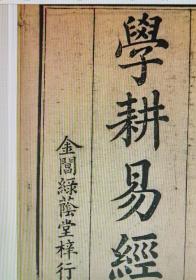 學耕易經
金閶綠蔭堂梓行